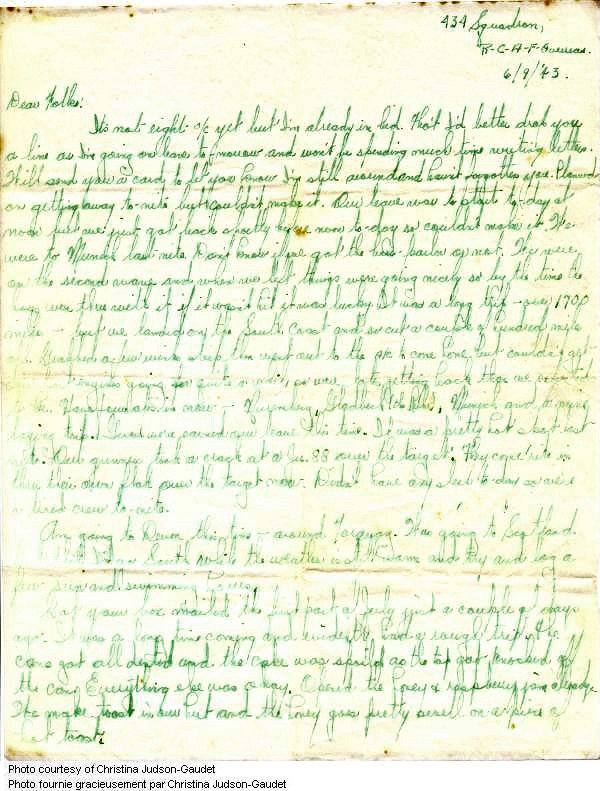 434 Squadron,
R-C-A-F-Overseas.
6/9/43.
Dear Folks:
It's not eight o/c yet but I'm already in bed. Tho't I'd better drop you
a line as I'm going on leave to-morrow and won't be spending much time writing letters.
I will send you a card to let you know I'm still around and haven't forgotten you. Planned
on getting away to-nite but couldn't make it. Our leave was to start to-day at
noon but we just got back shortly before noon to-day so couldn't make it. We
were to Munich last nite. Don't know if we got the beer parlor or not. We were
on the second wave and when we left things were going nicely so by the time the
boys were thru with it if it wasn't hit it was lucky. It was a long trip - over 1700
miles - but we landed on the South Coast and so cut a couple of hundred miles
off. Grabbed a few winks sleep then went out to the a/c to come home but couldn't get
engines going for quite a while, so were late getting back than we expected
to be. Have four ops in now - Nuremburg, Gladbach, Munich and a mine
laying trip. I think we've earned our leave this time. It was a pretty hot spot last
nite. Our gunner took a crack at a Ju. 88 over the target. They come rite in
thru their own flak over the target now. Didn't have any sleep to-day so we're
a tired crew to-nite.
Am going to Devon this time - around Torquay. Was going to Scotland
South while the weather is still warm and try and get a
few sun and swimming
Got your box mailed the first part of July just a couple of days
ago. It was a long time coming and evidently had a rough trip. The
cans got all dented and the cake was spoiled as the top got knocked off
the can. Everything else was okay. Opened the honey & raspberry jam already.
We make toast in our hut and the honey goes pretty swell on a piece of
hot toast.
Photo courtesy of Christina Judson-Gaudet
Photo fournie gracieusement par Christina Judson-Gaudet